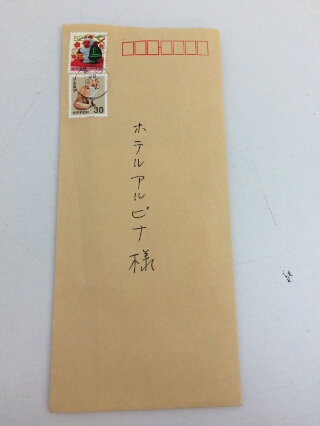 52
30
NIPPON
ホテルアルピナ様